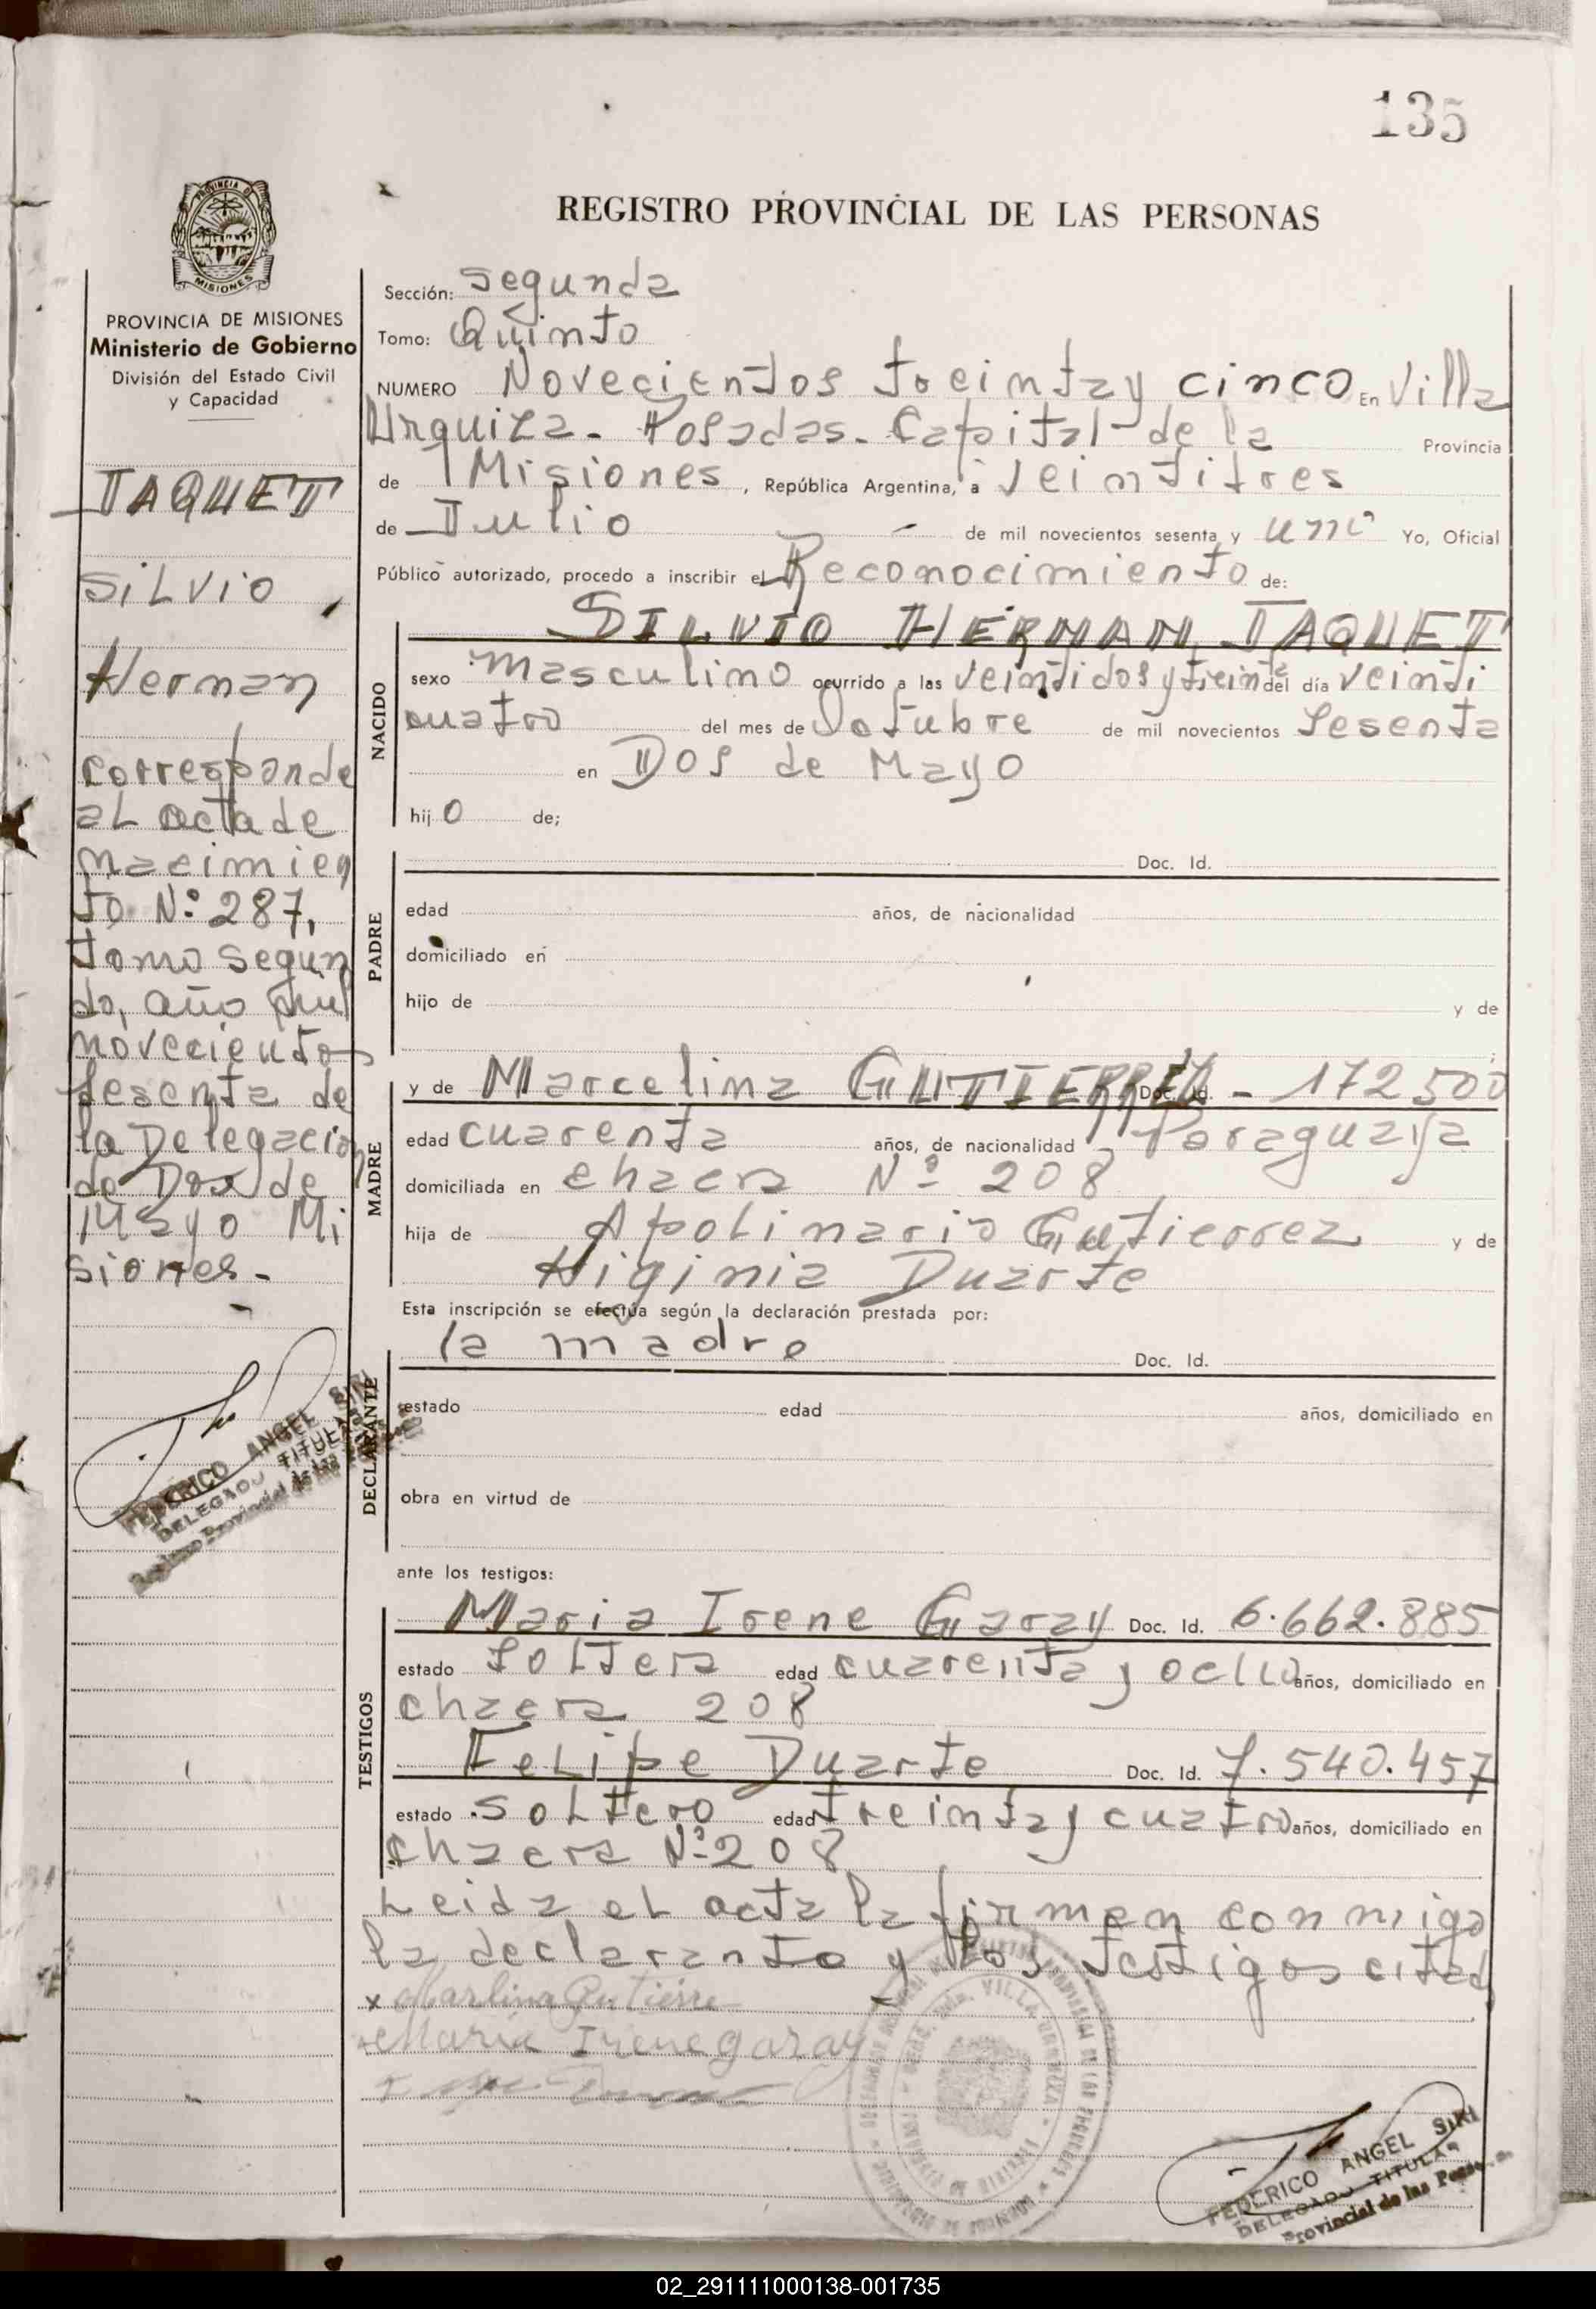 135
REGISTRO PROVINCIAL DE LAS PERSONAS
PROVINCIA DE MISIONES
PROVINCIA DE MISIONES
Ministerio de Gobierno
División del Estado Civil
y Capacidad
JAQUET
SILVIO
Hernan
Corresponde
al acta de
nacimien
to Nº 287,
tomo segun
do, año mil
novecientos
sesenta de
la Delegacion
de Dos de
Mayo Mi
siones.-
FEDERICO ANGEL SIRI
DELEGADO TITULAR
Registro Provincial de las
Sección: Segunda
Tomo: Quinto
NUMERO Novecientos treinta y cinco En Villa
Urquiza - Posadas - Capital de la Provincia
de Misiones, República Argentina, a Veintitres
de Julio de mil novecientos sesenta y uno Yo, Oficial
Público autorizado, procedo a inscribir el Reconocimiento de:
SILVIO HERNAN JAQUET
NACIDO
sexo masculino ocurrido a las veintidos y trein del día veinti
cuatro del mes de Octubre de mil novecientos Sesenta
en Dos de Mayo
hijo de;
PADRE
Doc. Id.
edad años, de nacionalidad
domiciliado en
hijo de y de
;
MADRE
y de Marcelina GUTIERREZ Doc. Id. - 172500
edad cuarenta años, de nacionalidad Paraguaya
domiciliada en chacra Nº 208
hija de Apolinario Gutierrez y de
Higinia Duarte
Esta inscripción se efectúa según la declaración prestada por:
DECLARANTE
la madre Doc. Id.
estado edad años, domiciliado en
obra en virtud de
ante los testigos:
TESTIGOS
Maria Irene Garay Doc. Id. 6.662.885
estado Soltera edad cuarenta y ocho años, domiciliado en
chacra 208
Felipe Duarte Doc. Id. 7.540.457
estado soltero edad treinta y cuatro años, domiciliado en
chacra Nº 208
Leida el acta la firman conmigo
la declarante y los testigos citad
x Marlina Gutierre
María Irene garay
VILLA URQUIZA
FEDERICO ANGEL SIRI
DELEGADO TITULAR
Provincial de las Personas
02_291111000138-001735